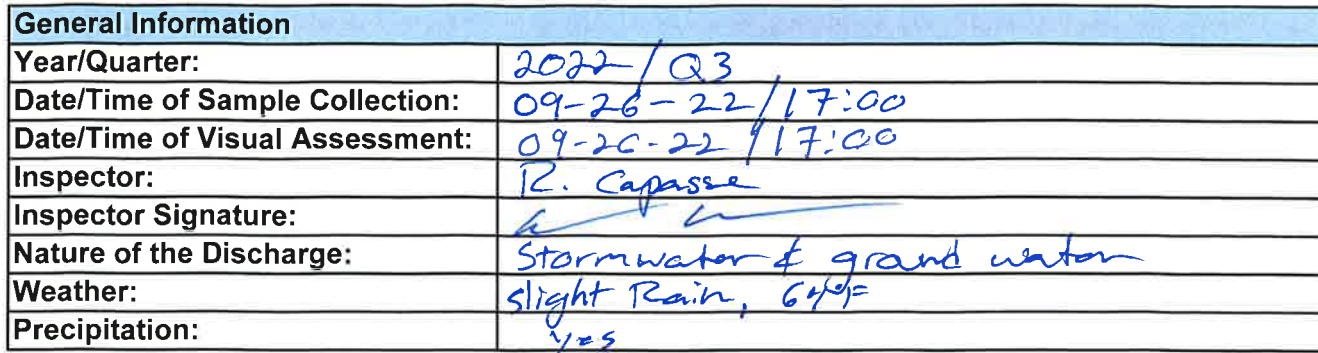 General Information
Year/Quarter: 2022/Q3
Date/Time of Sample Collection: 09-26-22/17:00
Date/Time of Visual Assessment: 09-26-22/17:00
Inspector: R. Capasse
Inspector Signature:
Nature of the Discharge: Stormwater & ground water
Weather: slight Rain, 64°F
Precipitation: yes